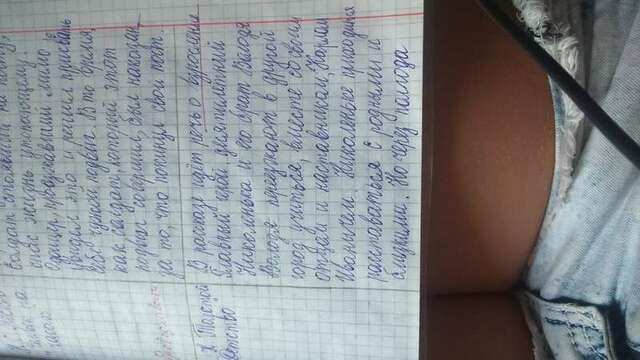 солдат стоявший на посту,
спас жизнь утопающему.
часах
Офицер, проезжавший мимо
увидел это и решил присвоить
себе чужой подвиг. В то время,
как солдат, который этот
подвиг совершил, был наказан
за то, что покинул свой пост.
Толстой
В рассказе идёт речь о взрослении
Детство"
Главный герой десятилетний
Николенька и его брат Володя
Володя переезжают в другой
город учиться, вместе со своим
отцом и наставником Карлом
Иванычем. Николеньке приходится
расставаться с родными и
близкими. Но через полгода